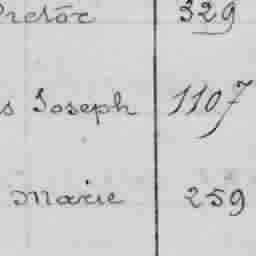 329
s Joseph 1107
Marie 259